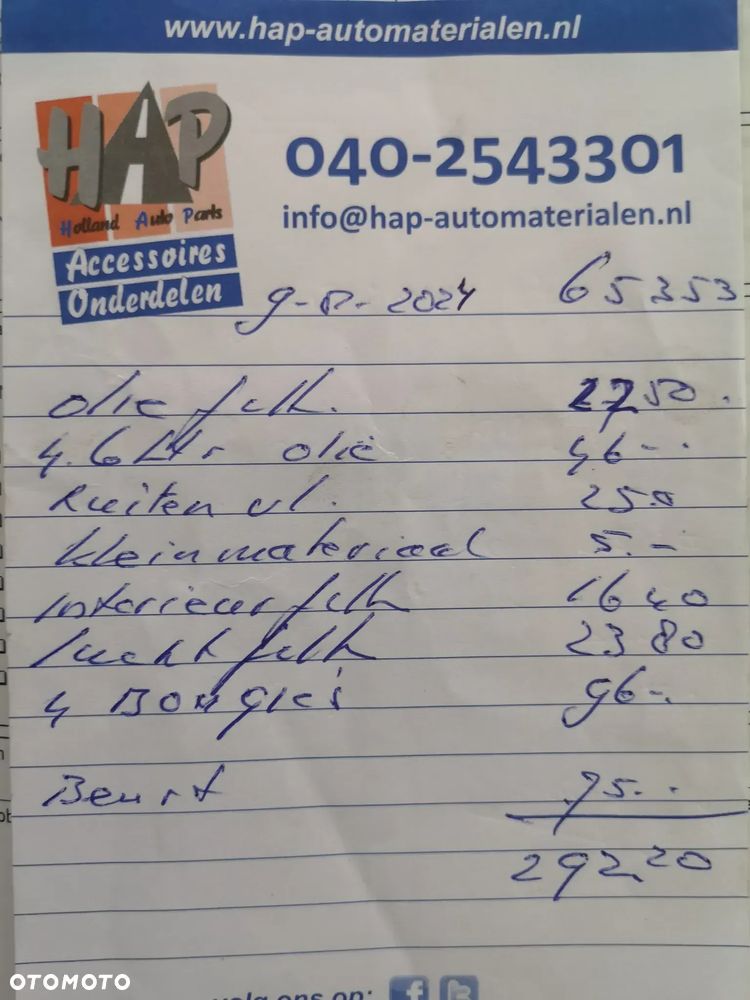 www.hap-automaterialen.nl
HAP
Holland Auto Parts
Accessoires
Onderdelen
040-2543301
info@hap-automaterialen.nl
9-8-2024 65353
olie filt. 27 50.
4.6 Ltr olie 46--
Ruiten vl. 2 50
klein materiaal 5.-
interieur filt 16 40
lucht filt 23 80
4 Bougie's 96-.
Beurt 75.-
292,20
volg ons op:
OTOMOTO